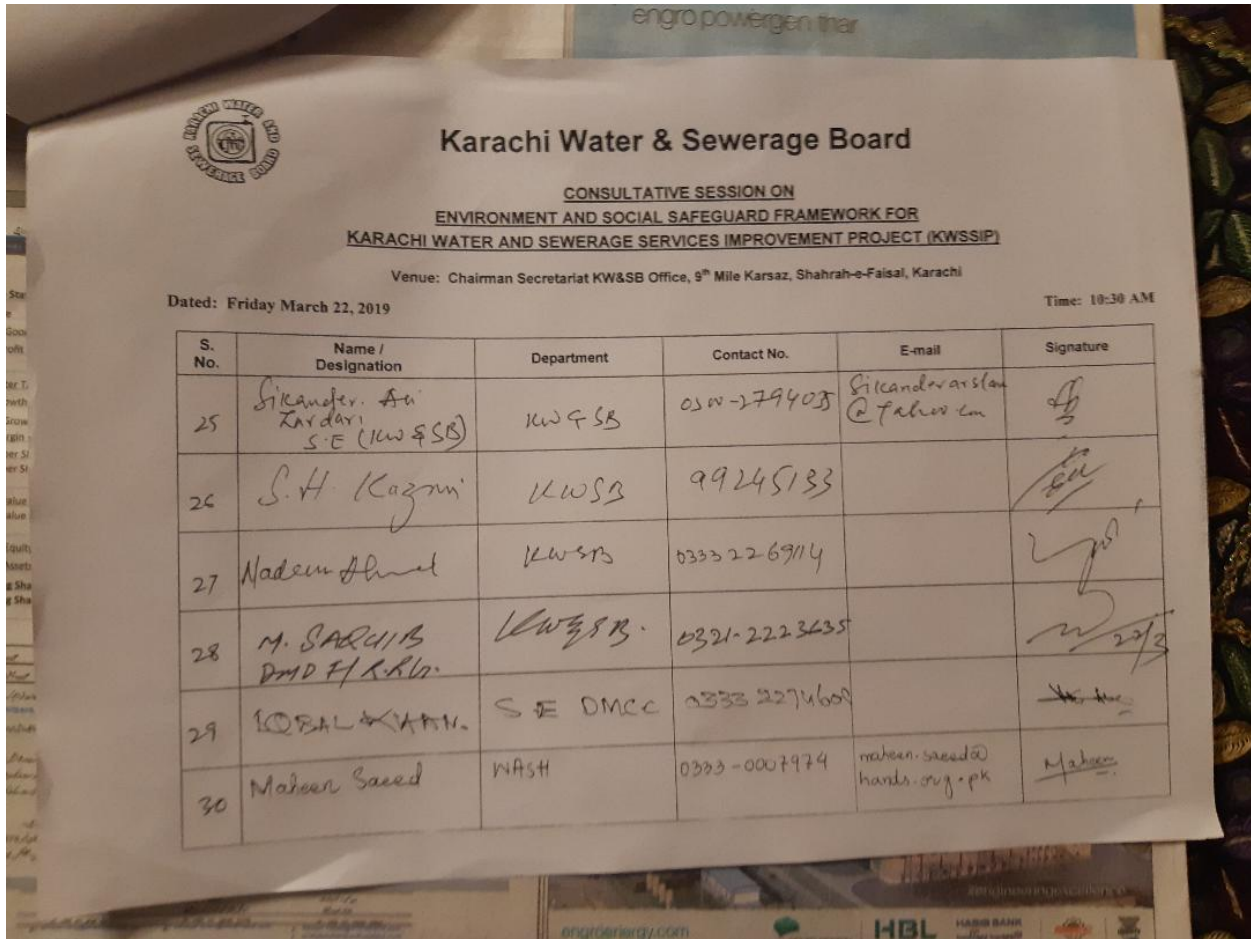 engro powergen thar
KARACHI WATER AND SEWERAGE BOARD
Karachi Water & Sewerage Board
CONSULTATIVE SESSION ON
ENVIRONMENT AND SOCIAL SAFEGUARD FRAMEWORK FOR
KARACHI WATER AND SEWERAGE SERVICES IMPROVEMENT PROJECT (KWSSIP)
Venue: Chairman Secretariat KW&SB Office, 9th Mile Karsaz, Shahrah-e-Faisal, Karachi
Dated: Friday March 22, 2019 Time: 10:30 AM
S. No. Name / Designation Department Contact No. E-mail Signature
25 Sikander Ali Zardari S.E (KW&SB) KW&SB
26 S.H. Kazmi KWSB 99245133
27 Nadeem Ahmed KWSB 0333 2269114
28 M. SAQUIB DMD F/ KW&SB. 0321-2223635 22/3
29 IQBAL KHAN. S E DMCC
30 Maheen Saeed WASH 0333-0007974 maheen.saeed@hands.org.pk Maheen
engroenergy.com
HBL HABIB BANK